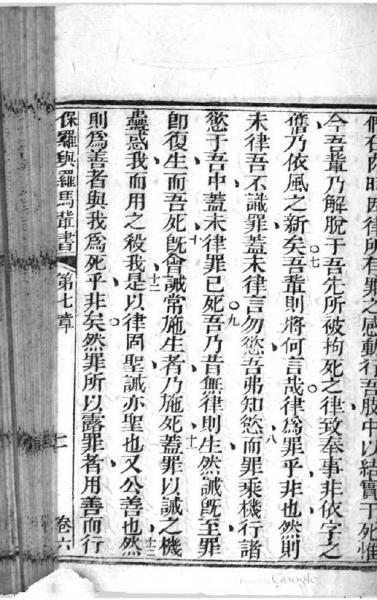 們在肉時因律所有罪之感動行吾肢中以結實于死惟
今吾輩乃解脫于吾先所被拘死之律致奉事非依字之
乃依風之新矣。七吾輩則將何言哉。律爲罪乎非也然則
未律吾不識罪蓋未律言勿慾吾弗知慾而罪八乘機行諸
慾于吾中蓋未律罪已死。九吾乃昔無律則生然誡旣至罪
卽復生而吾死十旣會誡常施生者乃施死十一蓋罪以誡之機
蠱惑我而用之殺我十二是以律固聖誡亦聖也又公善也十三然
則爲善者與我爲死乎非矣。然罪所以露罪者用善而行
保羅與羅馬輩書 第七章 七 卷六
Google